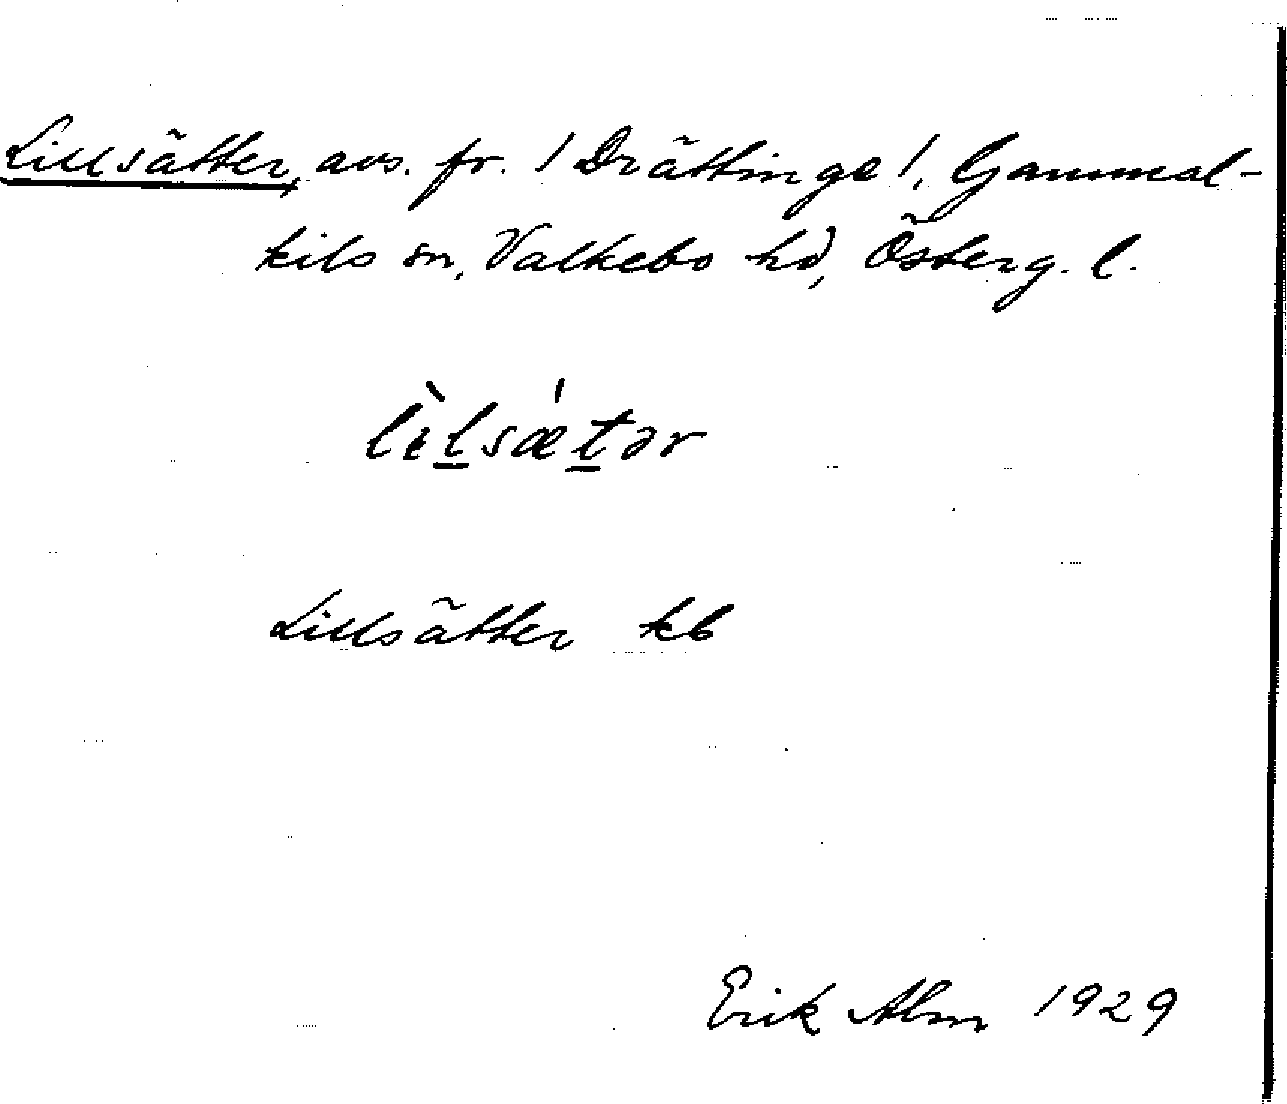 Lillsätter, avs. fr. /Drättinge/, Gammal-
kils sn, Valkebo hd, Österg. l.
lìlsǽtər
Lillsätter kb
Erik Alm 1929